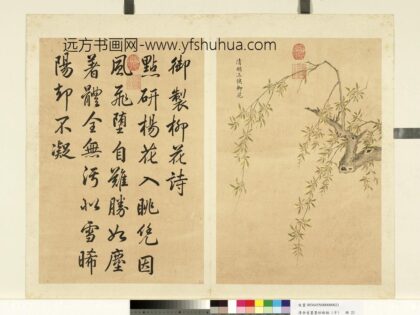 远方书画网-www.yfshuhua.com
清明三候柳花
御製柳花詩
點研楊花入眺凭因
風飛墮自難勝如塵
著體全無污似雪晞
陽却不凝